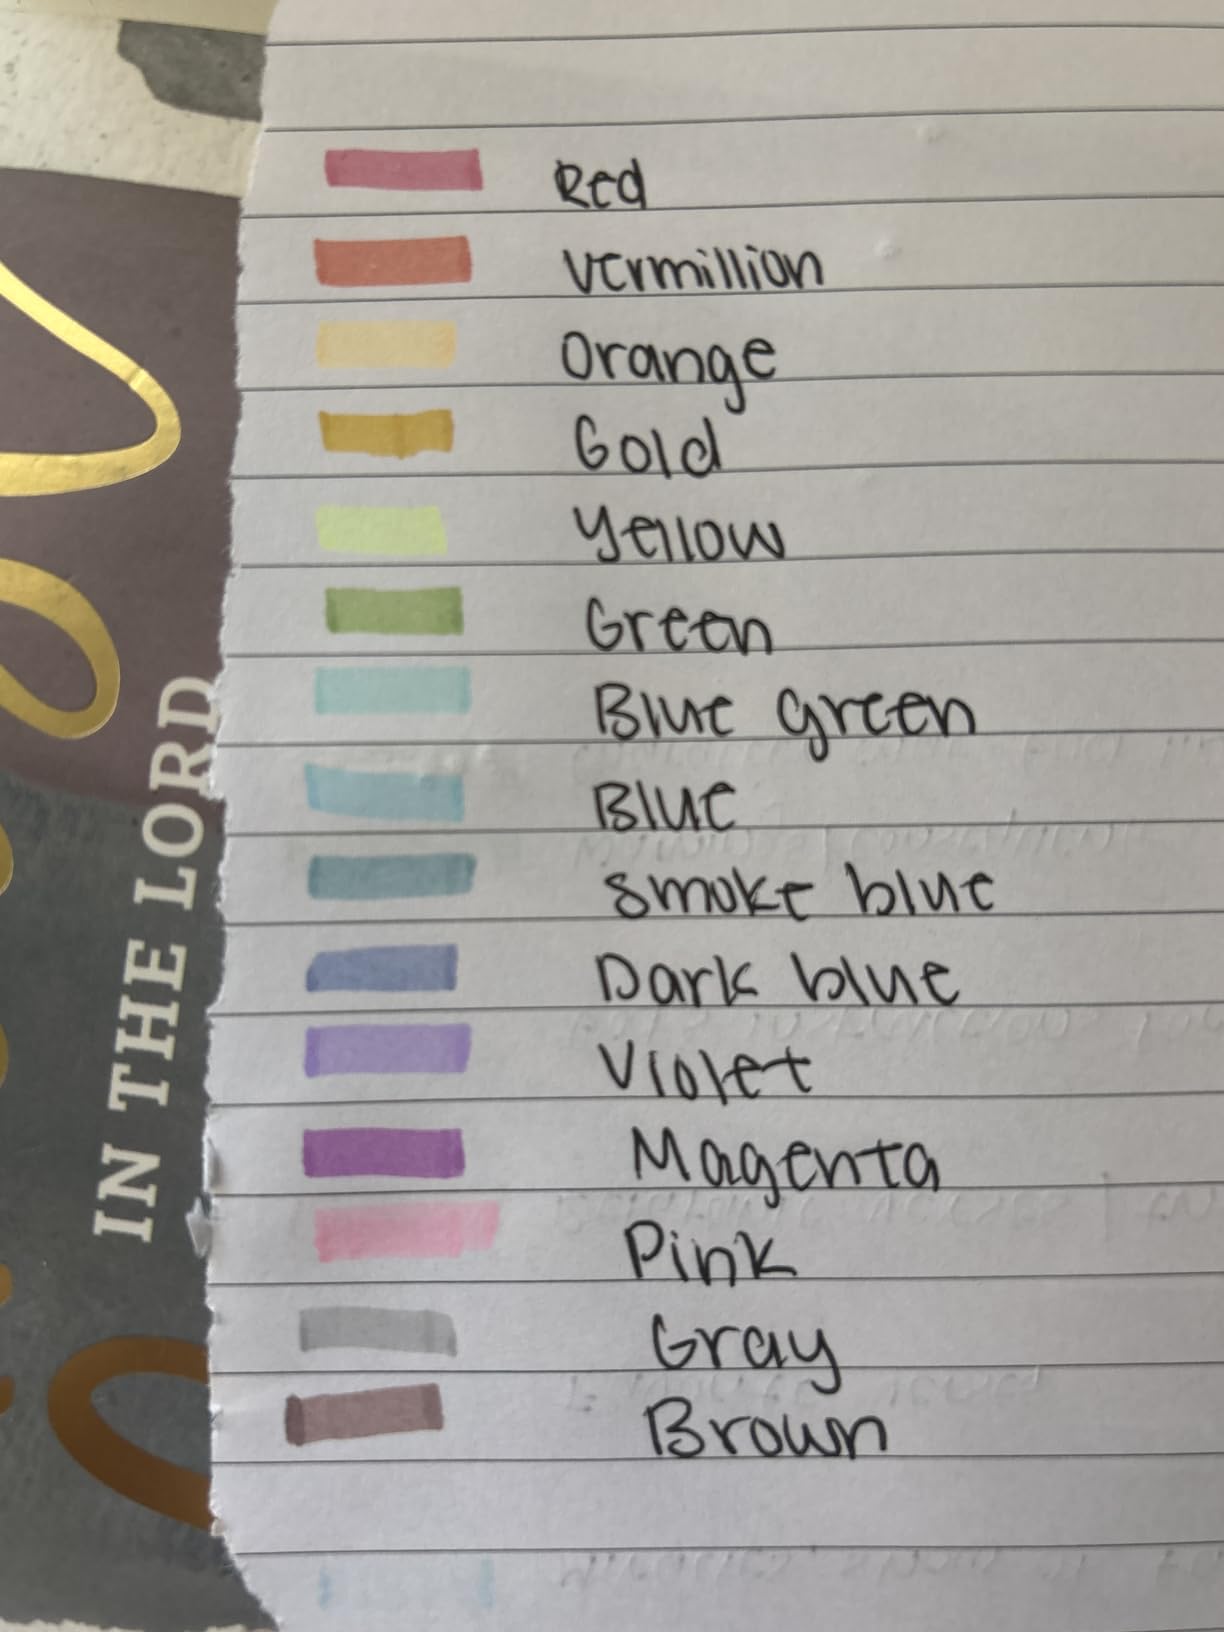 Red
Vermillion
Orange
Gold
Yellow
Green
Blue green
Blue
Smoke blue
Dark blue
Violet
Magenta
Pink
Gray
Brown
IN THE LORD